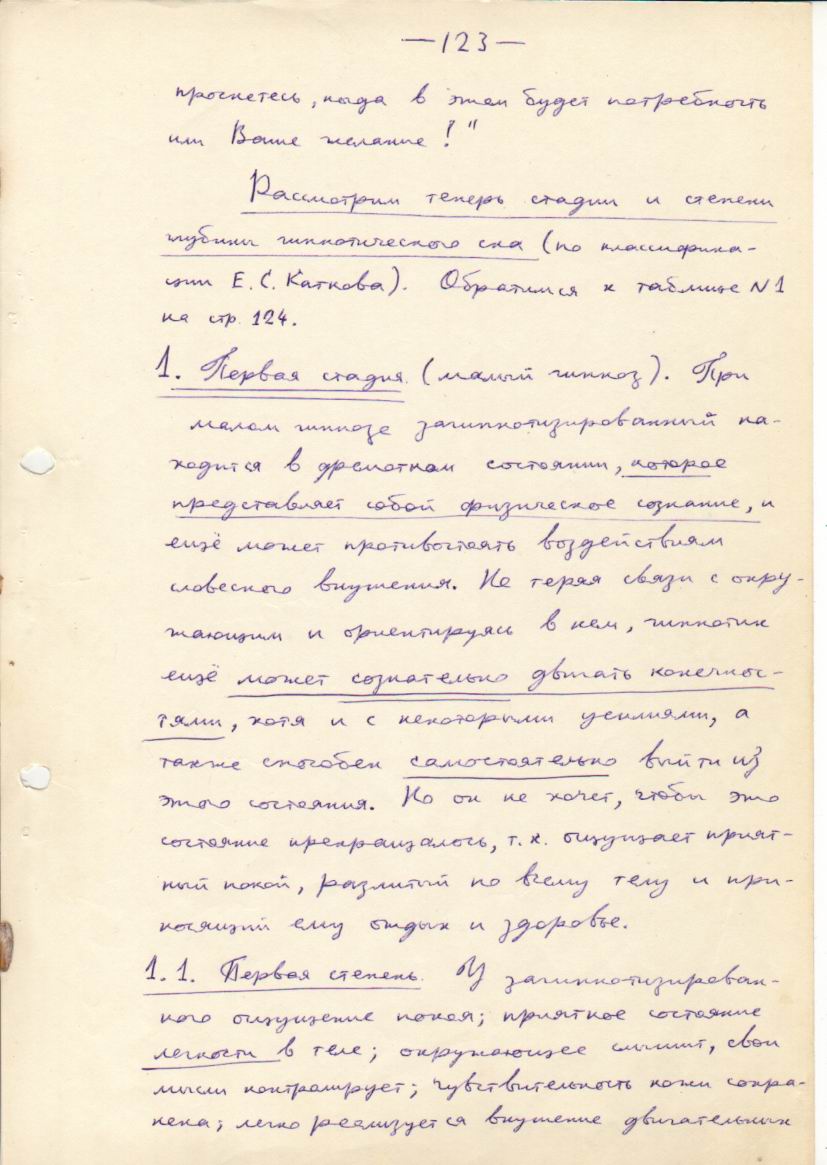 —123—
проснетесь, когда в этом будет потребность
или Ваше желание!"
Рассмотрим теперь стадии и степени
глубины гипнотического сна (по классифика-
ции Е.С. Каткова). Обратимся к таблице N1
на стр. 124.
1. Первая стадия. (малый гипноз). При
малом гипнозе загипнотизированный на-
ходится в дремотном состоянии, которое
представляет собой физическое сознание, и
ещё может противостоять воздействиям
словесного внушения. Не теряя связи с окру-
жающим и ориентируясь в нем, гипнотик
ещё может сознательно двигать конечнос-
тями, хотя и с некоторыми усилиями, а
также способен самостоятельно выйти из
этого состояния. Но он не хочет, чтобы это
состояние прекращалось, т.к. ощущает прият-
ный покой, разлитый по всему телу и при-
носящий ему отдых и здоровье.
1.1. Первая степень. У загипнотизирован-
ного ощущение покоя; приятное состояние
легкости в теле; окружающее слышит, свои
мысли контролирует; чувствительность кожи сохра-
нена; легко реализуется внушение двигательных